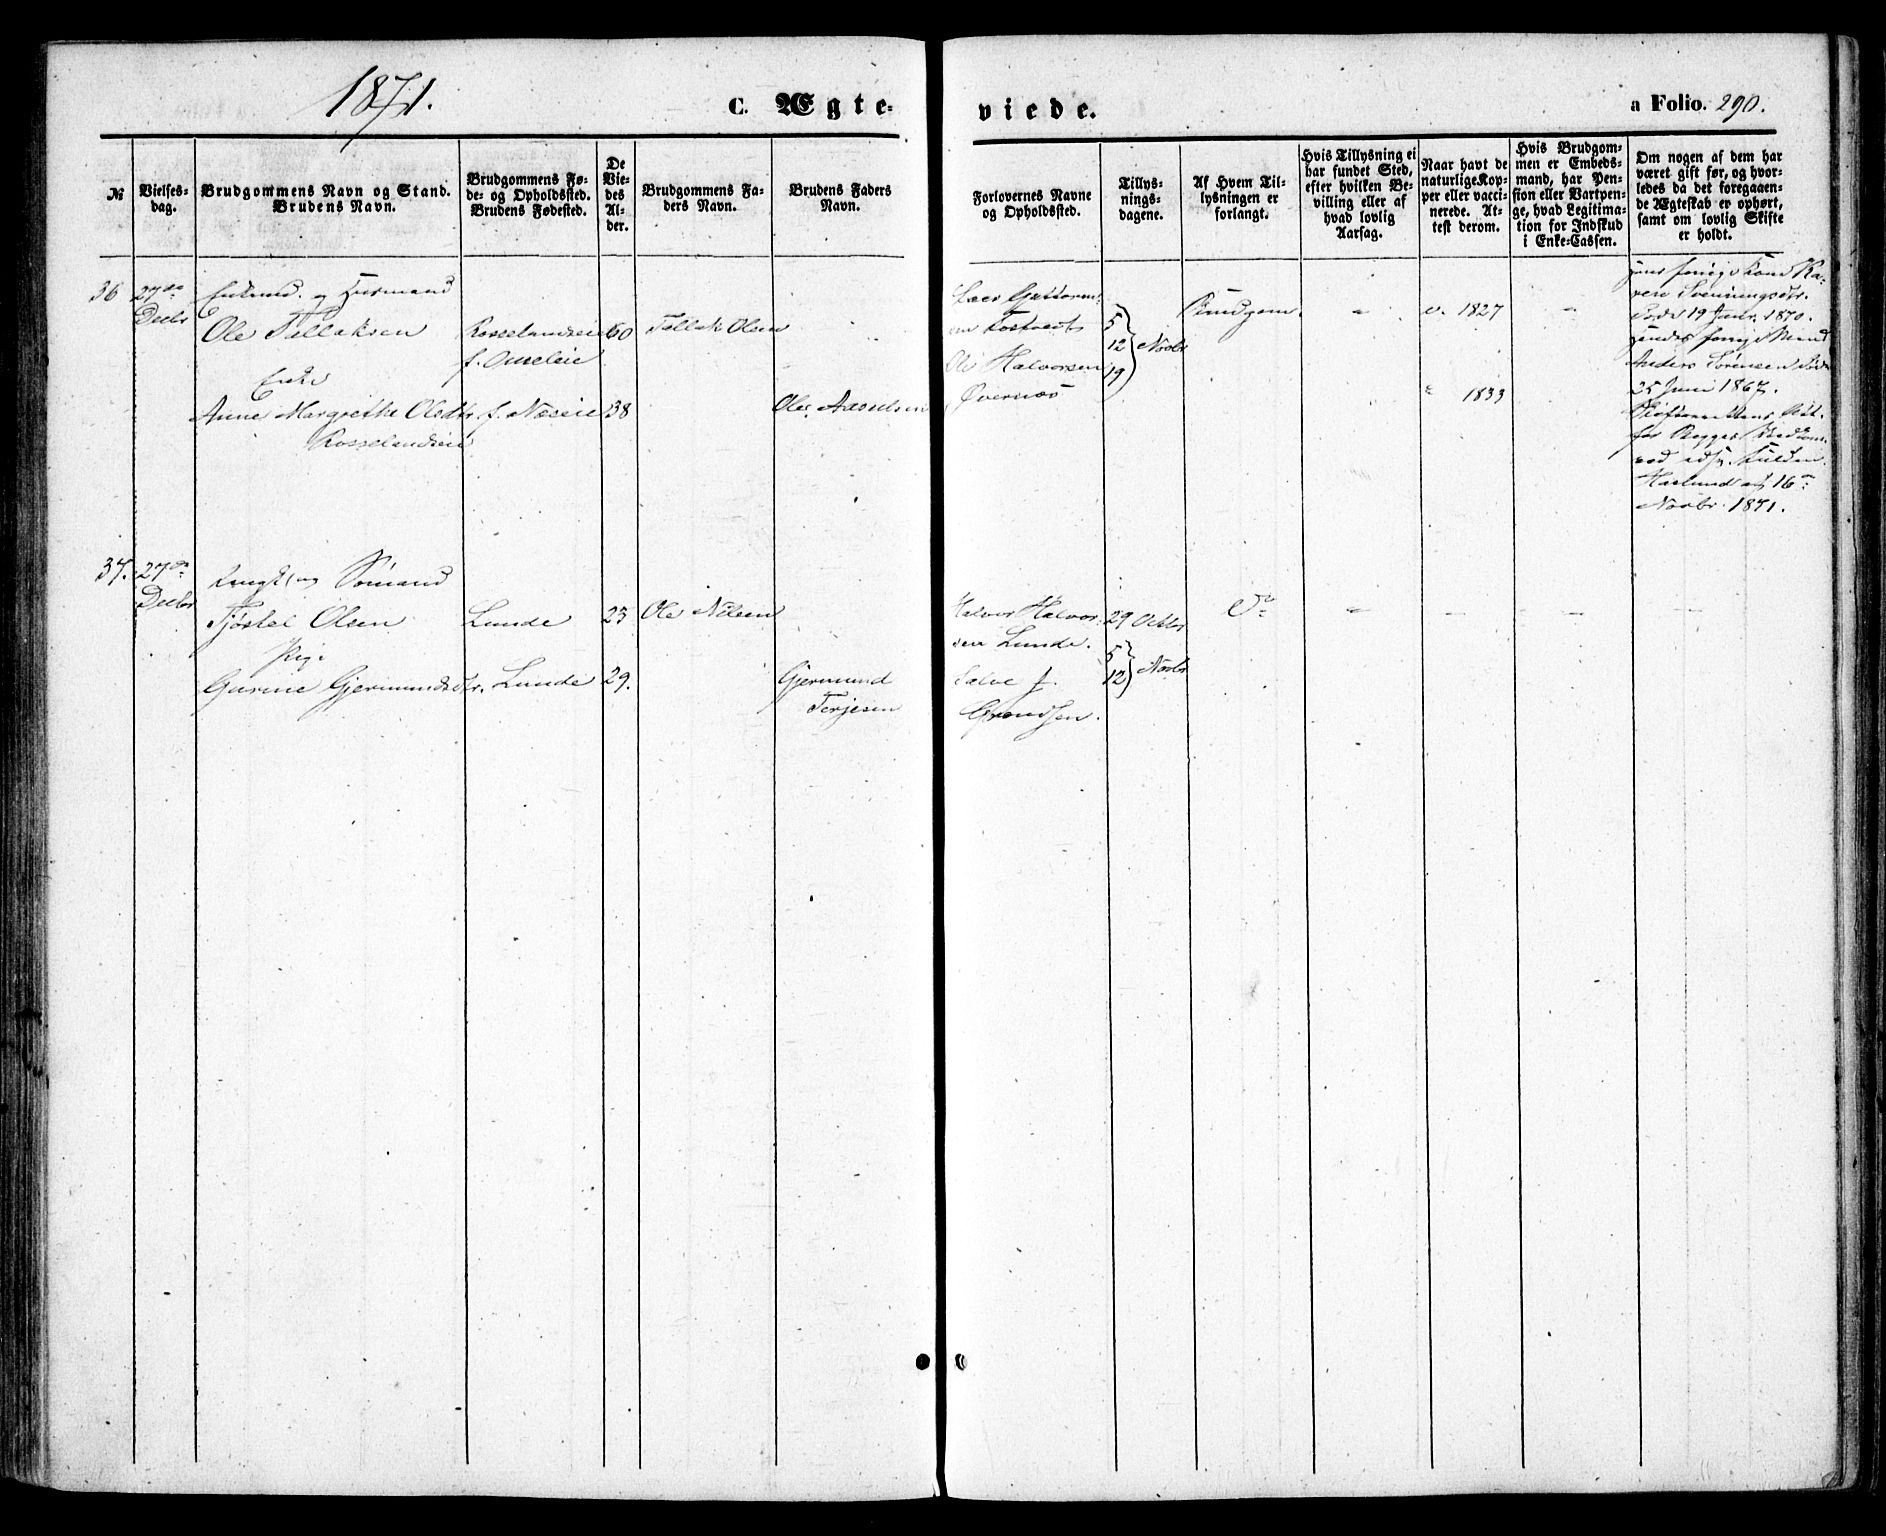 1871.
C. Ægte-
viede.
a Folio. 290.
№
Vielses-
dag.
Brudgommens Navn og Stand.
Brudens Navn.
Brudgommens Fø-
de- og Opholdssted.
Brudens Fødested.
De
Vie-
des
Al-
der.
Brudgommens Fa-
ders Navn.
Brudens Faders
Navn.
Forlovernes Navne
og Opholdssted.
Tillys-
nings-
dagene.
Af Hvem Til-
lysningen er
forlangt.
Hvis Tillysning ei
har fundet Sted,
efter hvilken Be-
villing eller af
hvad lovlig
Aarsag.
Naar havt de
naturlige Kop-
per eller vacci-
nerede. At-
test derom.
Hvis Brudgom-
men er Embeds-
mand, har Pen-
sion eller Vartpen-
ge, hvad Legitima-
tion for Indskud
i Enke-Cassen.
Om nogen af dem har
været gift før, og hvor-
ledes da det foregaaen-
de Ægteskab er ophørt,
samt om lovlig Skifte
er holdt.
36
27de
Decbr
Enkmd. og Huusmand
Ole Tellaksen
Enke
Anne Margrethe Olsdtr
Rosselandseie
Rosselandseie
f. Næseie
60
38
Tellak Olsen
Ole Aanelsen
Lars Guttorm-
sen Tostvedt
Ole Halvorsen
Øvernæs
5
12
19
Novbr
Brudgom
v. 1827
" 1833
Hans forrige Kone Ka-
ren Svenningsdtr.
døde 19 Janr. 1870.
Hendes forrige Mand
Anders Sørensen døde
25 Juni 1867.
for Begges
16de
Novbr. 1871.
37.
27de
Decbr
Ungk. og Sømand
Tjøstel Olsen
Pige
Gurine Gjermundsdtr.
Lunde
Lunde
23
29.
Ole Nilsen
Gjermund
Terjesen
Halvor Halvor-
sen Lunde.
Salve J.
Grundsen.
29 Octbr
5
12
Novbr
Do